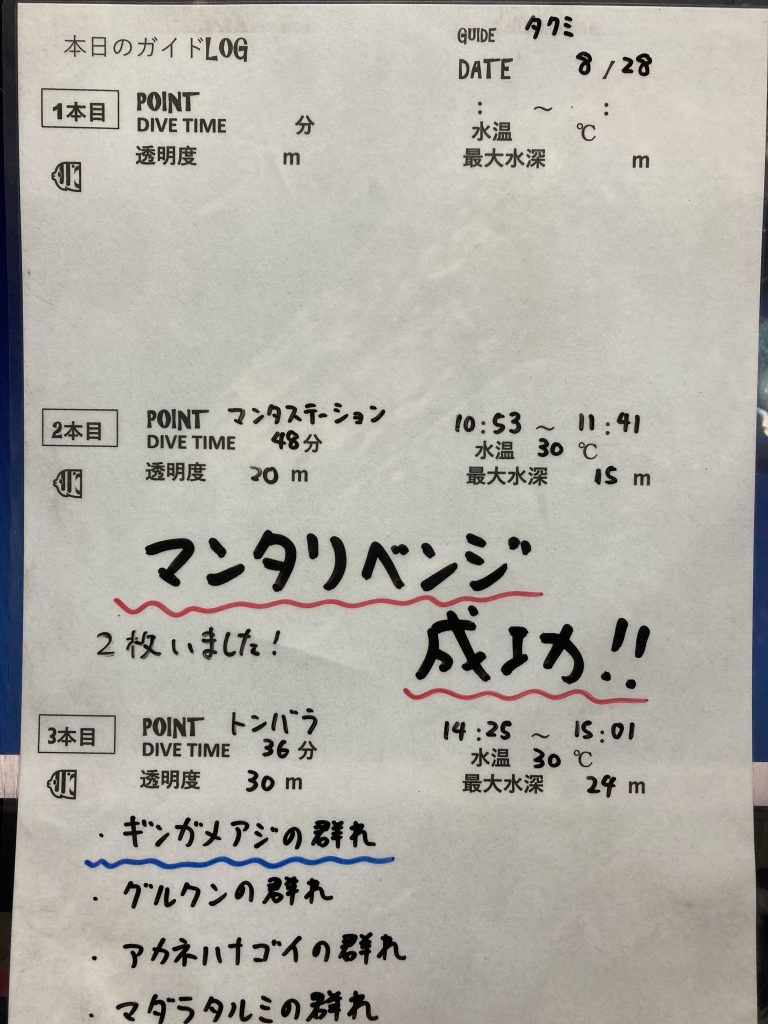 本日のガイドLOG
GUIDE タクミ
DATE 8/28
1本目 POINT : ～ :
DIVE TIME 分 水温 ℃
透明度 m 最大水深 m
2本目 POINT マンタステーション 10:53 ～ 11:41
DIVE TIME 48分 水温 30 ℃
透明度 20 m 最大水深 15 m
マンタリベンジ
成功!!
2枚いました!
3本目 POINT トンバラ 14:25 ～ 15:01
DIVE TIME 36分 水温 30 ℃
透明度 30 m 最大水深 24 m
・ギンガメアジの群れ
・グルクンの群れ
・アカネハナゴイの群れ
・マダラタルミの群れ